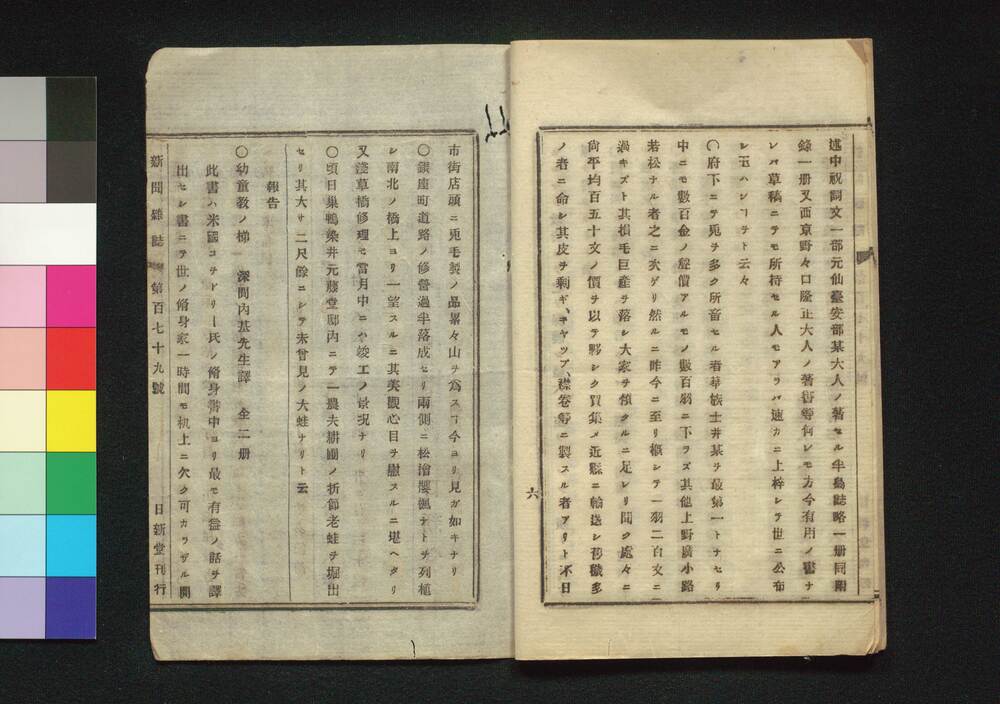 述中祝詞文一部元仙臺安部某大人ノ著セル半島誌略一册同附
錄一册又西京野々口隆正大人ノ著書等何レモ方今有用ノ書ナ
レバ草稿ニテモ所持セル人モアラバ速カニ上梓シテ世ニ公布
シ玉ハンヿヲト云々
〇府下ニテ兎ヲ多ク所畜セル者華族士井某ヲ最第一トナセリ
中ニモ數百金ノ聲價アルモノ數百羽ニ下ラズ其他上野廣小路
若松ナル者之ニ次ゲリ然ルニ昨今ニ至リ概シテ一羽二百文ニ
過キズト其損毛巨産ヲ落シ大家ヲ傾クルニ足レリ聞ク處々ニ
尙平均百五十文ノ價ヲ以テ夥シク買集メ近縣ニ輸送シ穢多
ノ者ニ命シ其皮ヲ剩ギ、キヤツプ、襟卷等ニ製スル者アリト不日
六
市街店頭ニ兎毛製ノ品累々山ヲ爲スヿ今ヨリ見ガ如キナリ
〇銀座町道路ノ修營過半落成セリ兩側ニ松檜櫻楓ナトヲ列植
シ南北ノ橋上ヨリ一望スルニ其美觀心目ヲ慰スルニ堪ヘタリ
又淺草橋修理モ當月中ニハ竣工ノ景況ナリ
〇頃日巢鴨染井元藤堂邸内ニテ一農夫耕圃ノ折節老蛙ヲ堀出
セリ其大サ二尺餘ニシテ未曾見ノ大蛙ナリト云
報告
〇幼童敎ノ梯 深間内基先生譯 全二册
此書ハ米國コヲドリー氏ノ脩身書中ヨリ最モ有益ノ話ヲ譯
出セシ書ニテ世ノ脩身家一時間モ机上ニ欠ク可カラザル開
新聞雜誌 第百七十九號 日新堂刊行